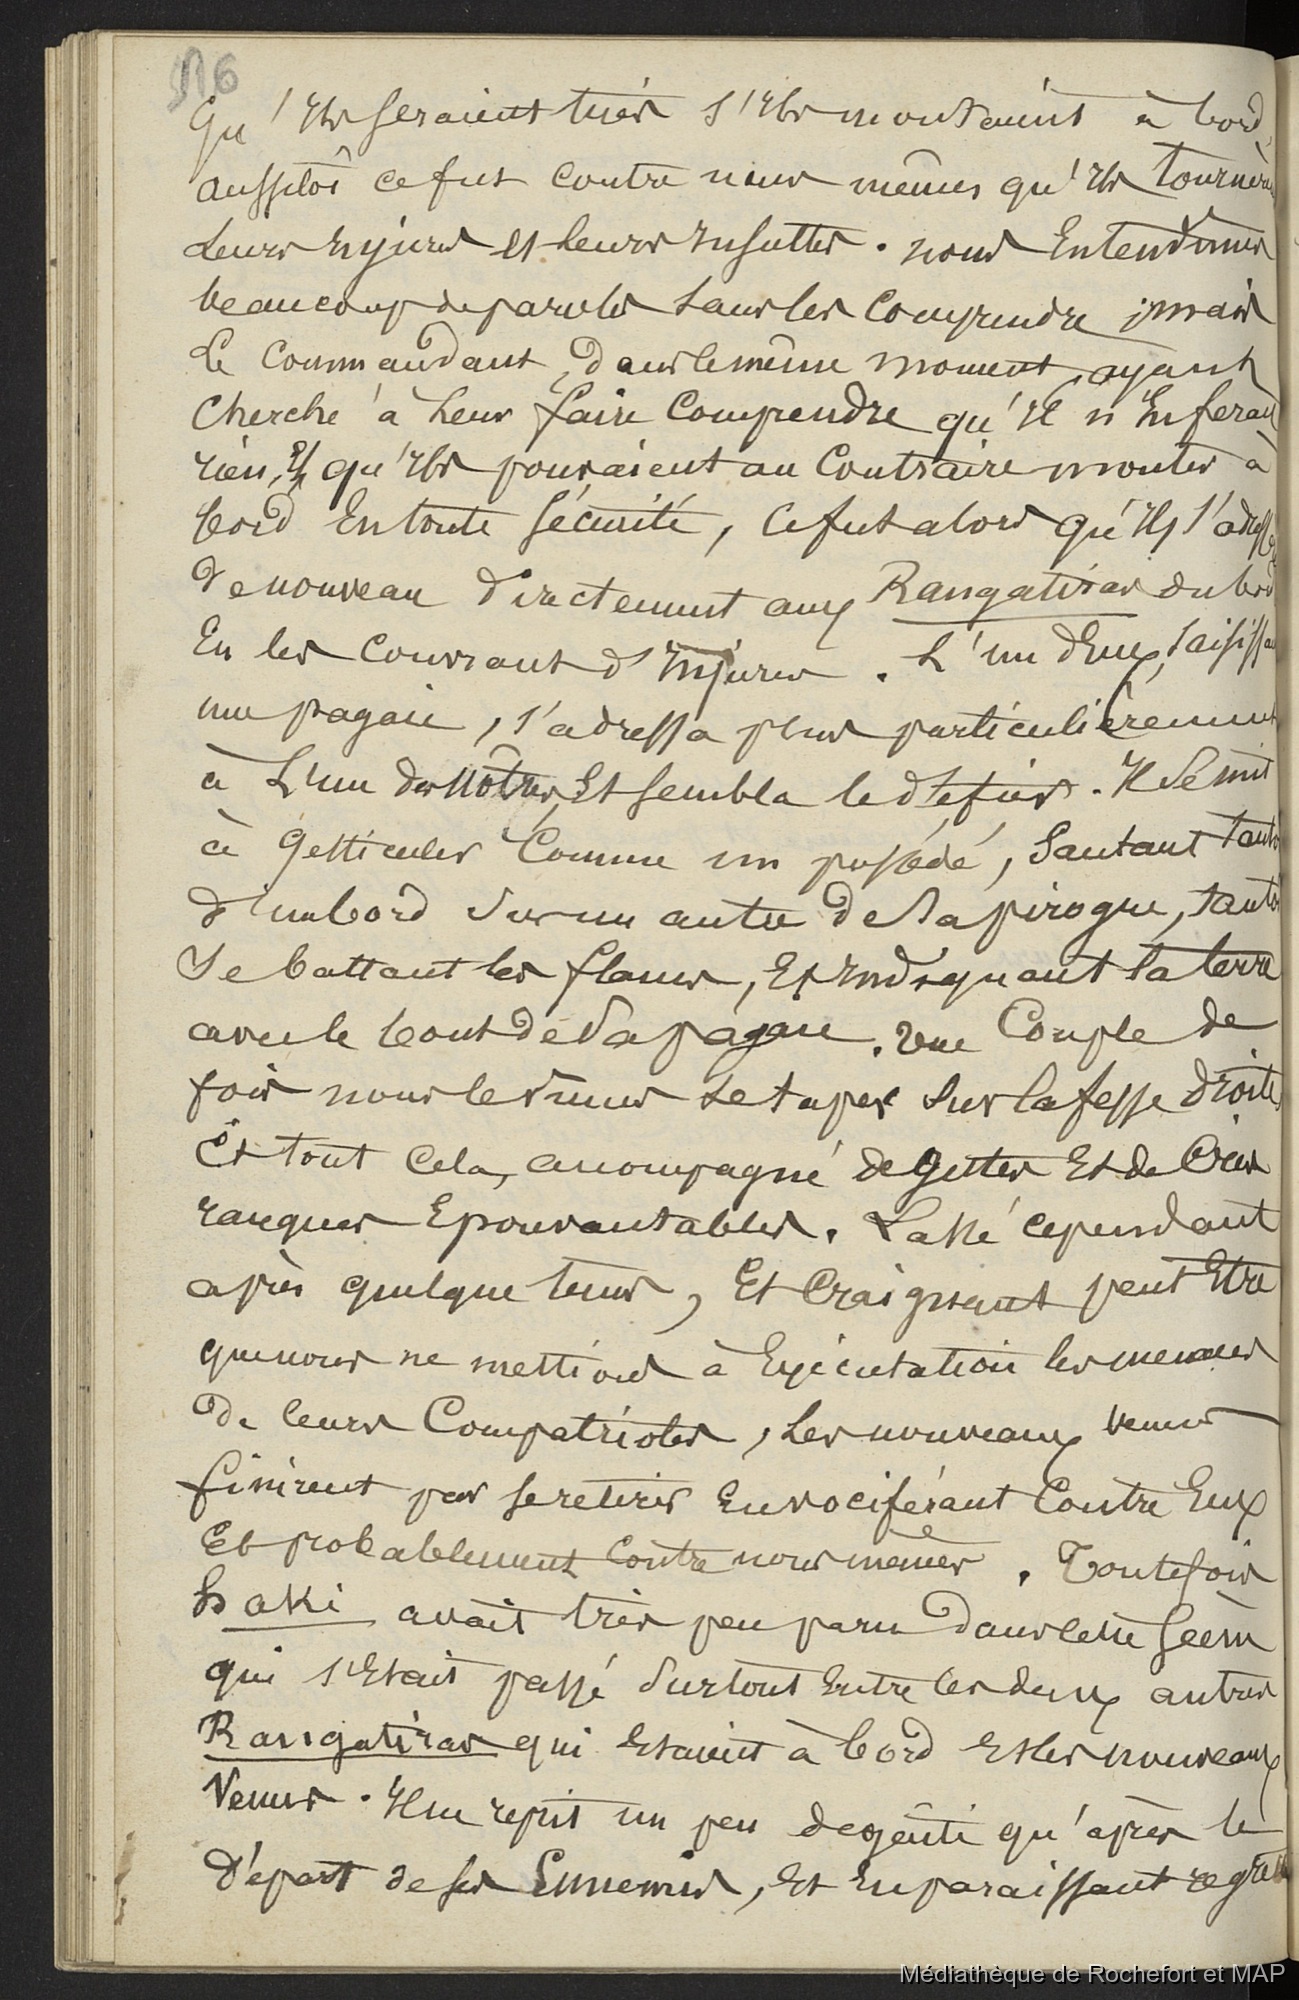 qu'ils seraient tués s'ils montaient à bord,
aussitôt ce fut contre nous mêmes qu'ils tournèrent
leurs injures et leurs insultes. nous Entendimes
beaucoup de paroles sans les Comprendre ; mais
Le Commandant, dans le même moment, ayant
Cherché à leur faire Comprendre qu'il n'En ferait
rien, Et qu'ils pouvaient au Contraire monter à
bord En toute Sécurité, Ce fut alors qu'ils s'adress
de nouveau directement aux Rangatiras du bord
En les Couvrant d'Injures. L'un d'Eux, saisissant
une pagaie, s'adressa plus particulièrement
à L'un des Nôtres, Et sembla le défier. Il se mit
à gesticuler Comme un possédé, Sautant tantôt
d'un bord sur un autre de la pirogue, tantôt
Se battant les flancs, Et Indiquant la terre
avec le bout de sa pagaie. Une Couple de
fois nous le vimes se taper sur la fesse droite,
Et tout Cela, accompagné de gestes Et de Cris
rauques Epouvantables. Lassé cependant
après quelque tems, Et Craignant peut Etre
que nous ne mettions à Exécutation les menaces
de leurs Compatriotes, Les nouveaux venus
finirent par se retirer En vociférant Contre Eux
Et probablement Contre nous mêmes. Toutefois
Haki avait très peu paru dans cette scène
qui s'Etait passé Surtout Entre les deux autres
Rangatiras qui Etaient à bord Et les nouveaux
Venus. Il ne reprit un peu de gaîté qu'après le
départ de ses Ennemis, Et En paraissant
Médiathèque de Rochefort et MAP